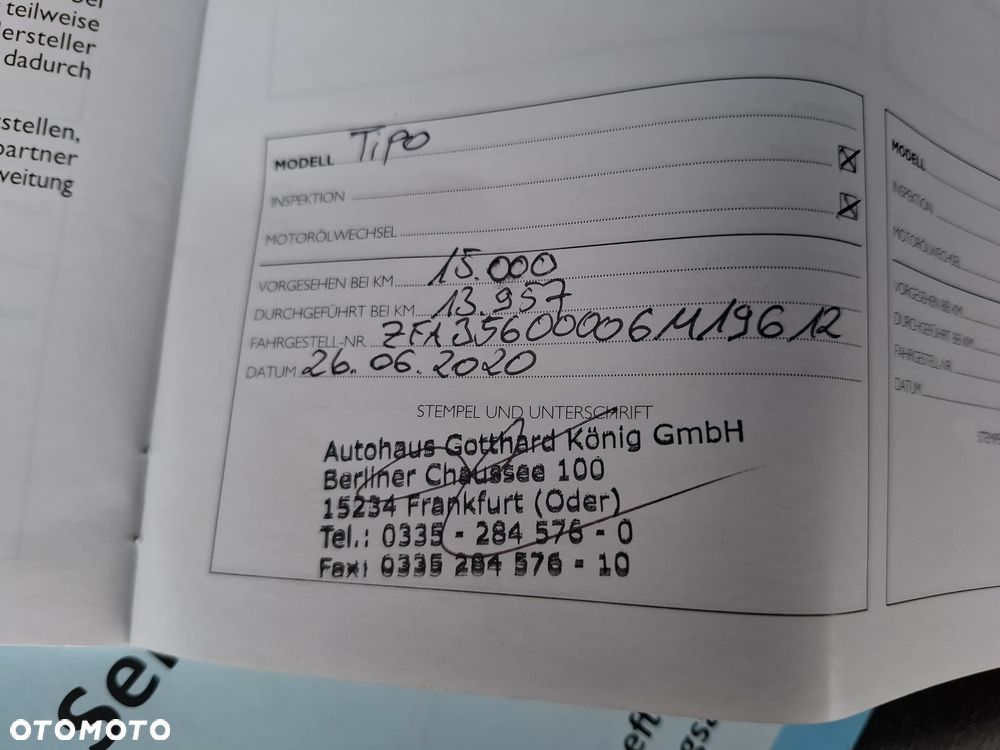 teilweise
dersteller
dadurch
stellen,
partner
weitung
MODELL Tipo
INSPEKTION
MOTORÖLWECHSEL
VORGESEHEN BEI KM 15.000
DURCHGEFÜHRT BEI KM 13.957
FAHRGESTELL-NR. ZFA35600006M19612
DATUM 26.06.2020
STEMPEL UND UNTERSCHRIFT
Autohaus Gotthard König GmbH
Berliner Chaussee 100
15234 Frankfurt (Oder)
Tel.: 0335 - 284 576 - 0
Fax: 0335 284 576 - 10
MODELL
INSPEKTION
MOTORÖLWECHSEL
VORGESEHEN BEI KM
DURCHGEFÜHRT BEI KM
FAHRGESTELL-NR.
DATUM
STEMPE
Ser
eft
OTOMOTO